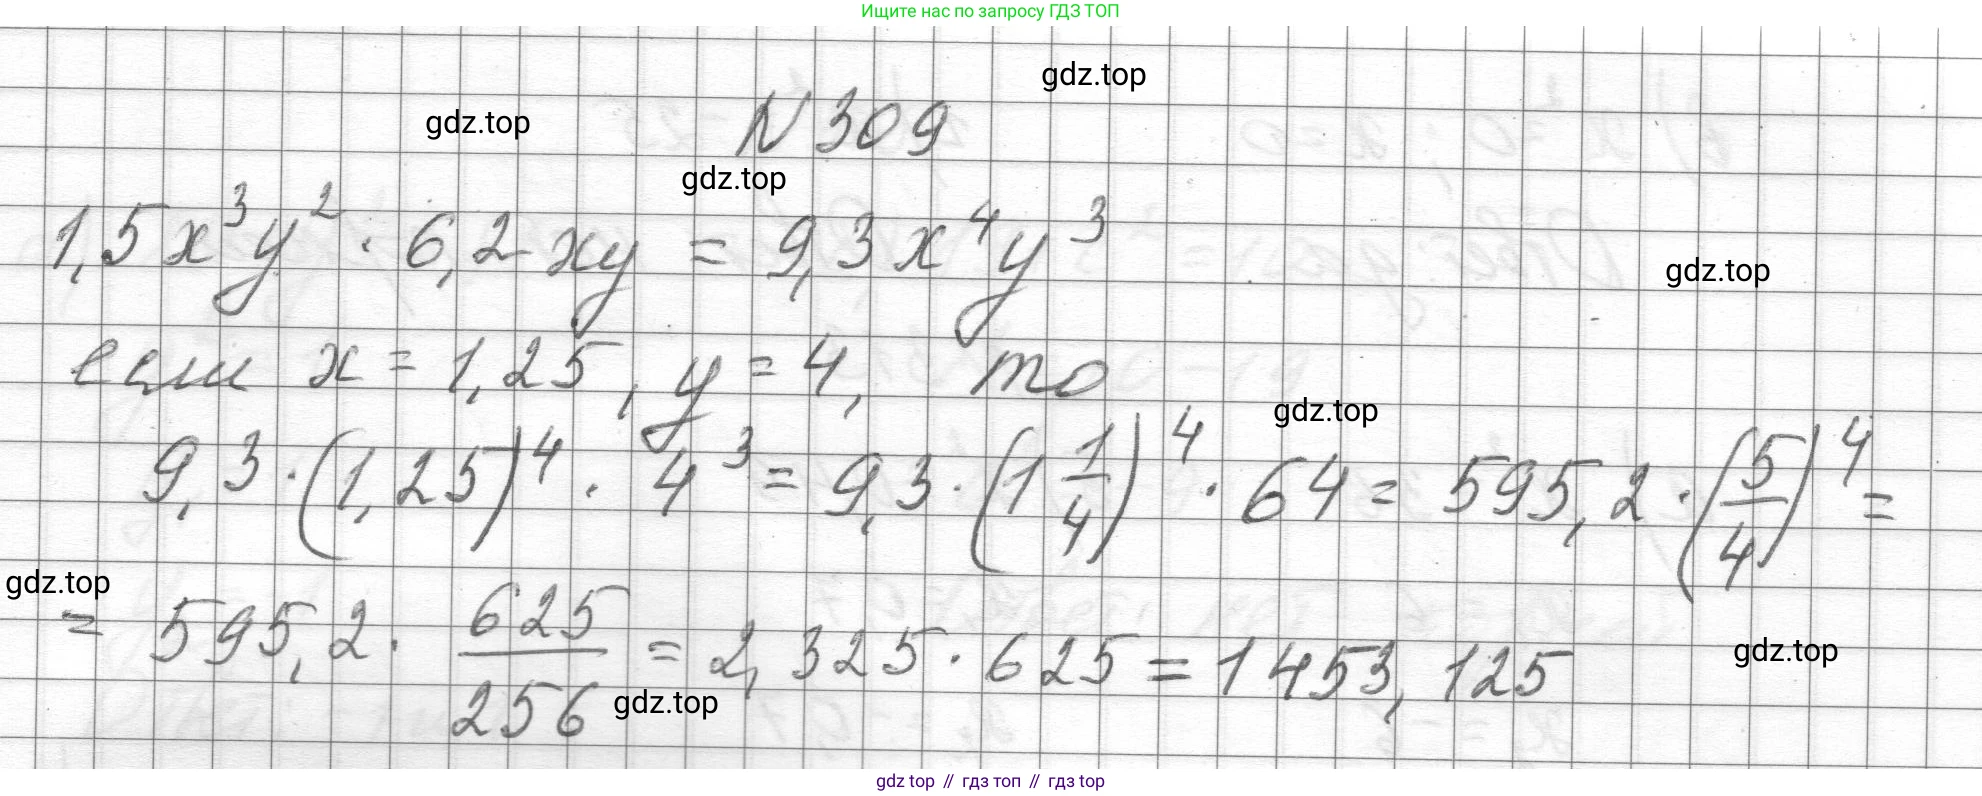 Ищите нас по запросу ГДЗ ТОП
gdz.top
gdz.top
N 309
gdz.top
1,5x³y² · 6,2xy = 9,3x⁴y³
gdz.top
если x = 1,25, y = 4, то
gdz.top
9,3 · (1,25)⁴ · 4³ = 9,3 · (1 1/4)⁴ · 64 = 595,2 · (5/4)⁴ =
gdz.top
= 595,2 · 625/256 = 2,325 · 625 = 1453,125
gdz.top
gdz.top
gdz top // гдз топ // гдз top